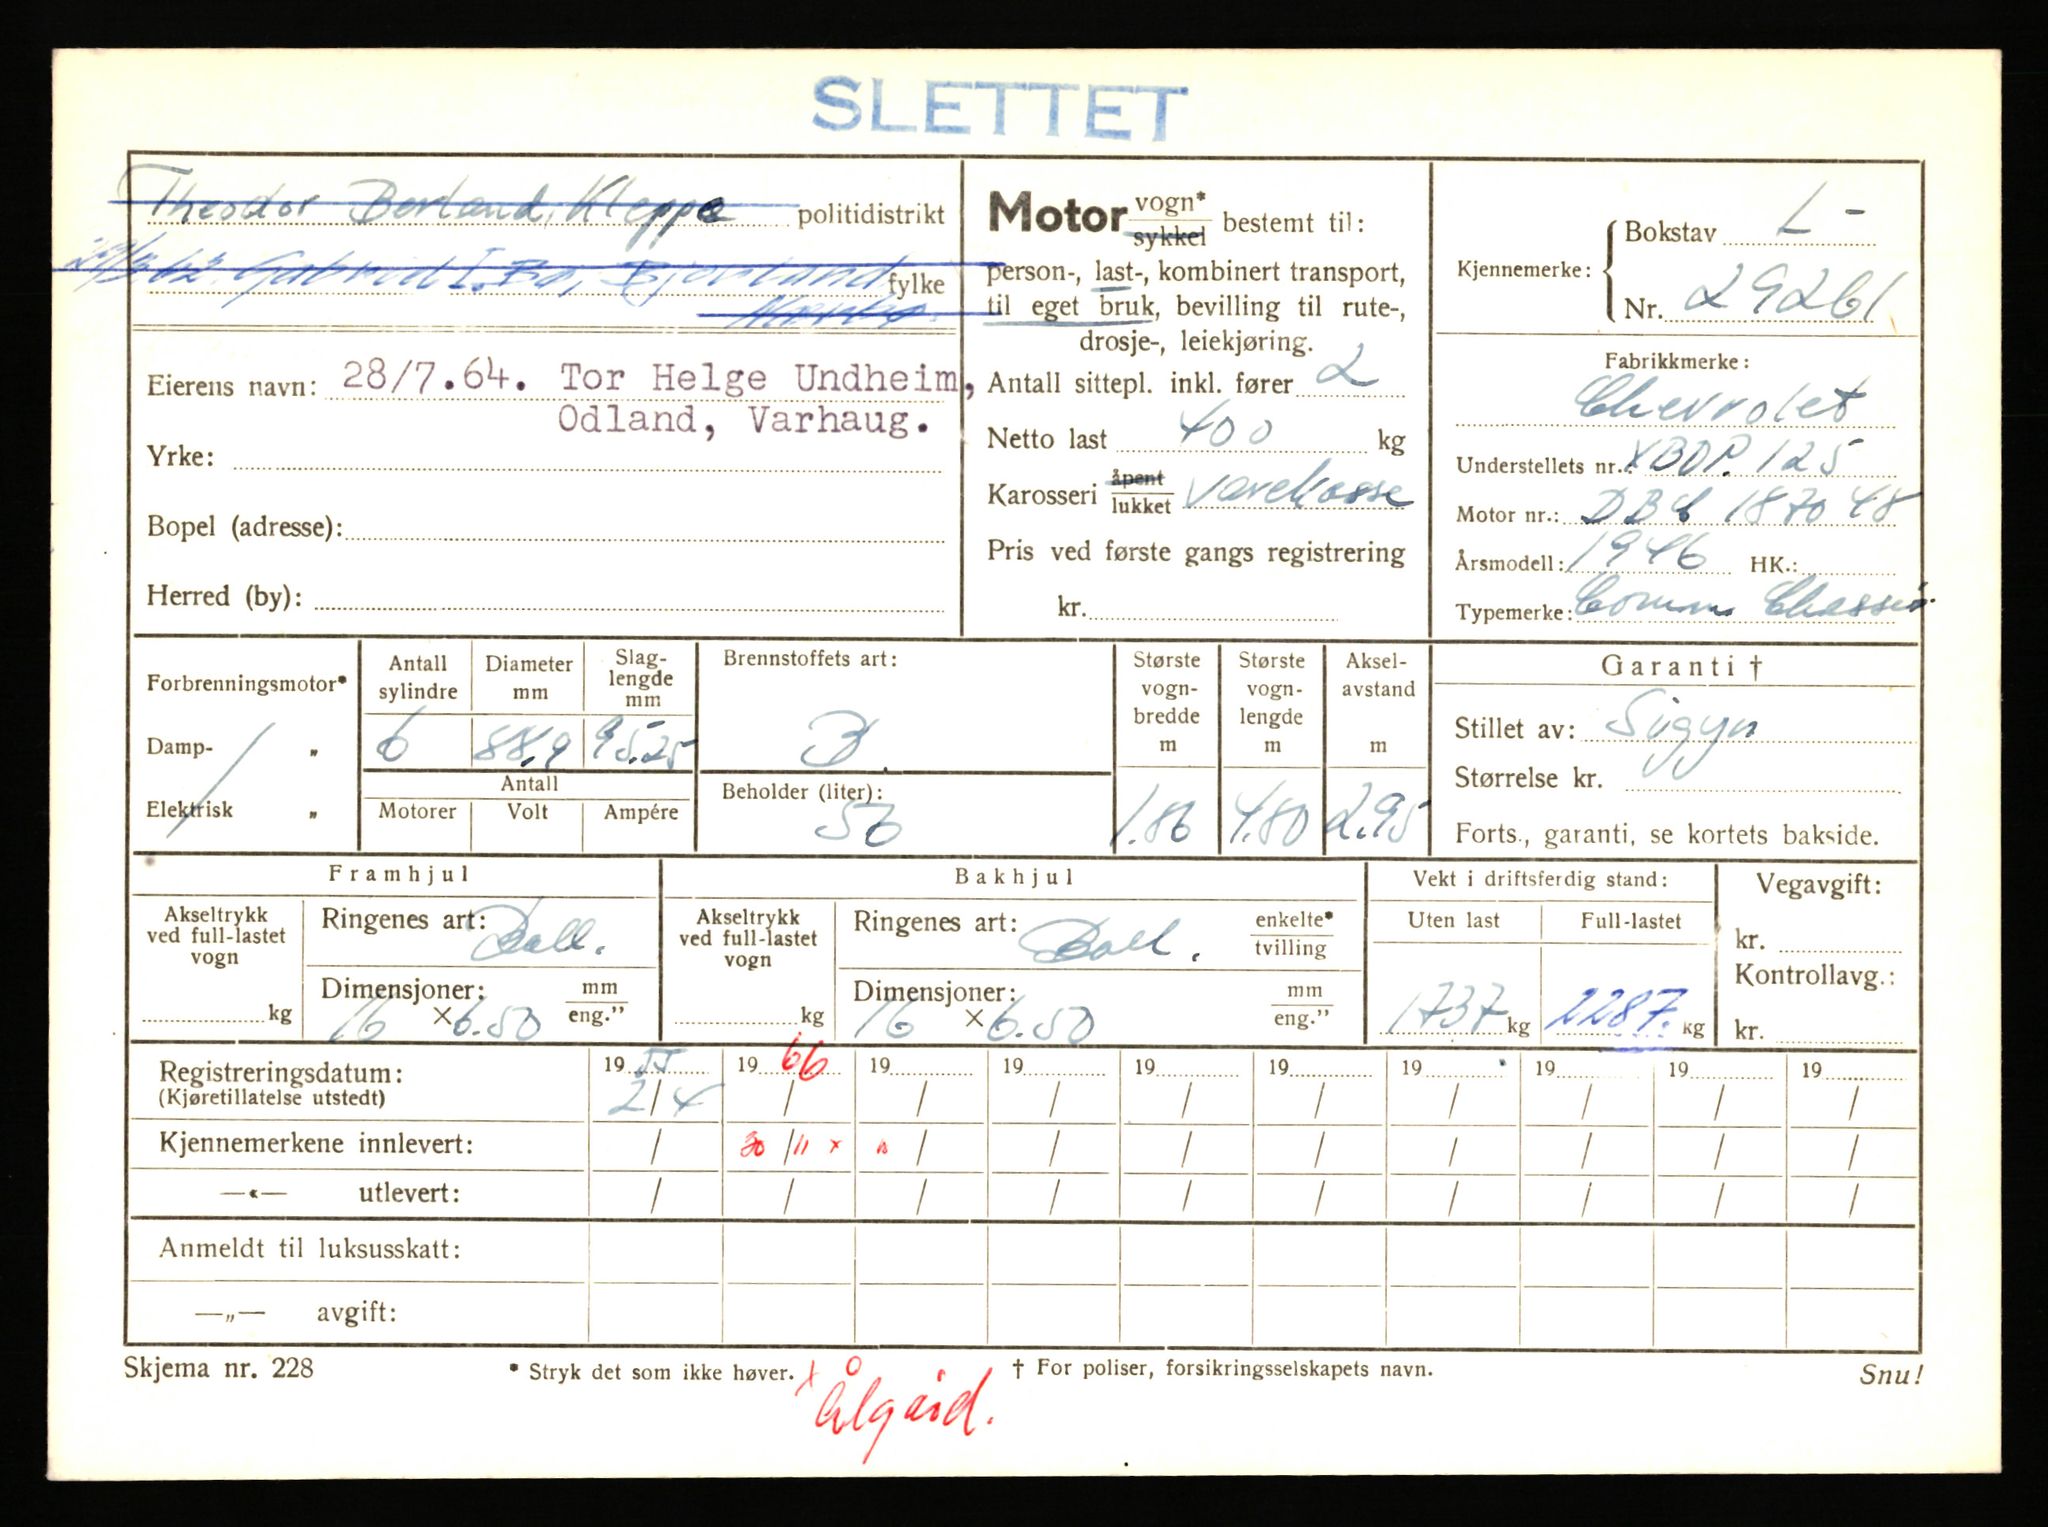 SLETTET
Theodor Borland, Kleppe politidistrikt
Gabriel I. Bø, fylke
Eierens navn: 28/7.64. Tor Helge Undheim,
Odland, Varhaug.
Yrke:
Bopel (adresse):
Herred (by):
Motor vogn* sykkel bestemt til:
person-, last-, kombinert transport,
til eget bruk, bevilling til rute-,
drosje-, leiekjøring.
Antall sittepl. inkl. fører 2
Netto last 400 kg
Karosseri åpent lukket varekasse
Pris ved første gangs registrering
kr.
Kjennemerke: Bokstav L-
Nr. 29261
Fabrikkmerke:
Chevrolet
Understellets nr.: XBDP. 125
Motor nr.: DBC 187048
Årsmodell: 1946 HK.:
Typemerke: Comm. Chassis.
Forbrenningsmotor*
Damp- „
Elektrisk „
Antall sylindre Diameter mm Slag-lengde mm
6 88,9 95.25
Antall
Motorer Volt Ampére
Brennstoffets art:
B.
Beholder (liter):
56
Største vogn-bredde m Største vogn-lengde m Aksel-avstand m
1.86 4.80 2.95
Garanti †
Stillet av: Sigyn
Størrelse kr.
Forts., garanti, se kortets bakside.
Framhjul
Akseltrykk ved full-lastet vogn
kg
Ringenes art: Ball.
Dimensjoner: mm eng."
16 × 6.50
Bakhjul
Akseltrykk ved full-lastet vogn
kg
Ringenes art: Ball. enkelte* tvilling
Dimensjoner: mm eng."
16 × 6.50
Vekt i driftsferdig stand:
Uten last Full-lastet
1737 kg 2287. kg
Vegavgift:
kr.
Kontrollavg.:
kr.
Registreringsdatum: 19 55 19 66 19 19 19 19 19 19 19 19
(Kjøretillatelse utstedt) 2/4 / / / / / / / / /
Kjennemerkene innlevert: / 30/11 x / / / / / / / /
—«— utlevert: / / / / / / / / / /
Anmeldt til luksusskatt:
—„— avgift:
Skjema nr. 228 * Stryk det som ikke høver. † For poliser, forsikringsselskapets navn. Snu!
x Ålgård.